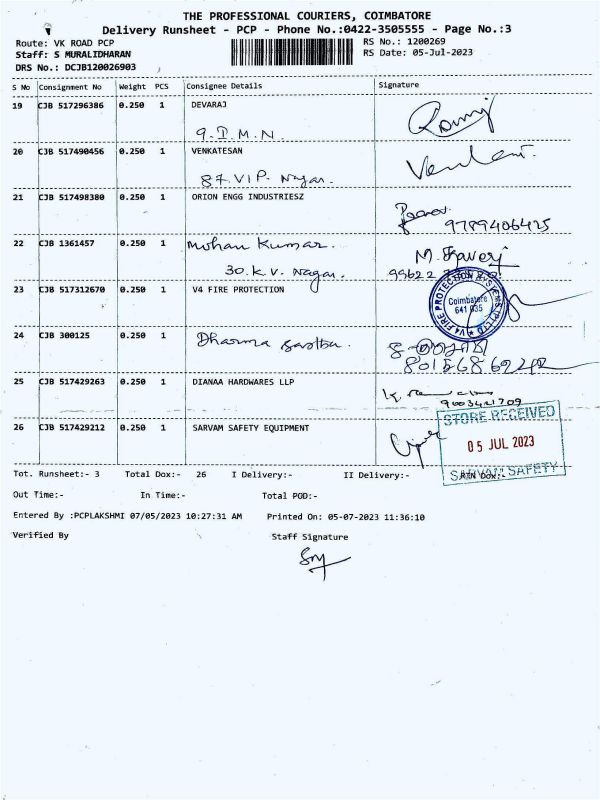 THE PROFESSIONAL COURIERS, COIMBATORE
Delivery Runsheet - PCP - Phone No.:0422-3505555 - Page No.:3
Route: VK ROAD PCP RS No.: 1200269
Staff: S MURALIDHARAN RS Date: 05-Jul-2023
DRS No.: DCJB120026903
S No Consignment No Weight PCS Consignee Details Signature
19 CJB 517296386 0.250 1 DEVARAJ
9.I.M.N.
20 CJB 517490456 0.250 1 VENKATESAN
87.VIP. Nagar.
21 CJB 517498380 0.250 1 ORION ENGG INDUSTRIESZ
9789406425
22 CJB 1361457 0.250 1 Mohan Kumar. M.
30.K.V. Nagar.
23 CJB 517312670 0.250 1 V4 FIRE PROTECTION
V4 FIRE PROTECTION SYSTEMS (P) LTD
Coimbatore
641 035
24 CJB 300125 0.250 1 Dharma Sastha.
25 CJB 517429263 0.250 1 DIANAA HARDWARES LLP
9003421709
26 CJB 517429212 0.250 1 SARVAM SAFETY EQUIPMENT
STORE RECEIVED
05 JUL 2023
SARVAM SAFETY
Tot. Runsheet:- 3 Total Dox:- 26 I Delivery:- II Delivery:- RTN Dox:-
Out Time:- In Time:- Total POD:-
Entered By :PCPLAKSHMI 07/05/2023 10:27:31 AM Printed On: 05-07-2023 11:36:10
Verified By Staff Signature